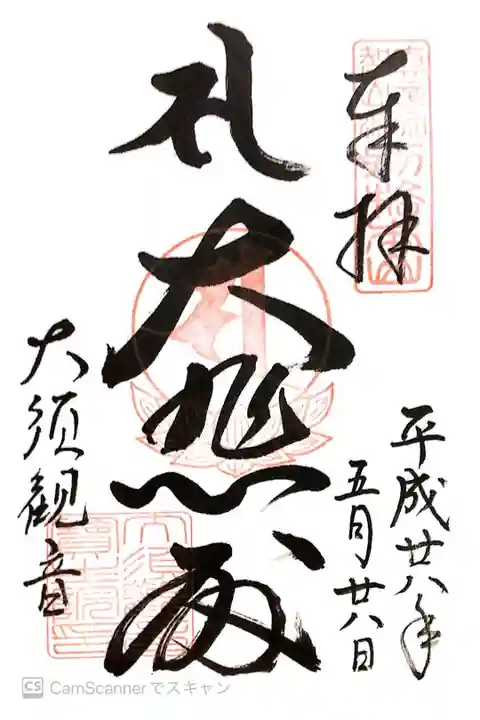 奉拝
平成廿八年
五月廿八日
大悲殿
大須観音
CS CamScannerでスキャン